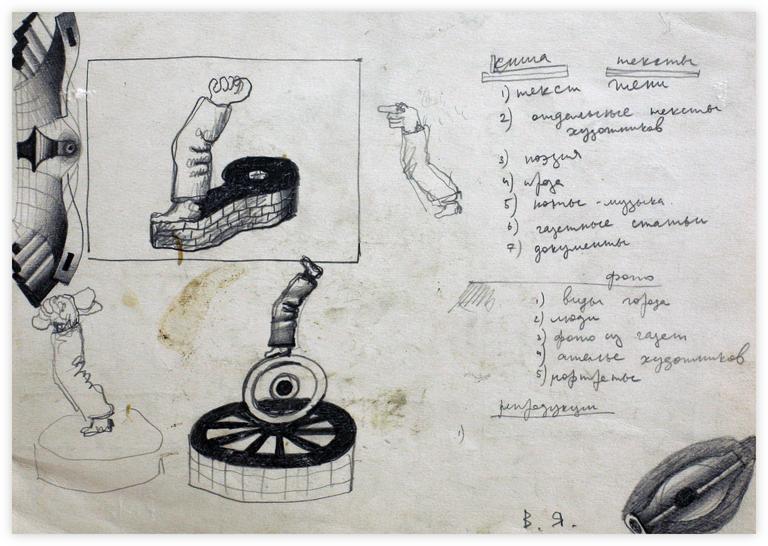 Книга тексты
1) текст Жени
2) отдельные тексты
художников
3) поэзия
4) проза
5) ноты - музыка.
6) газетные статьи
7) документы
фото
1) виды города
2) люди
3) фото из газет
4) ателье художников
5) портреты
репродукции
1)
В. Я.